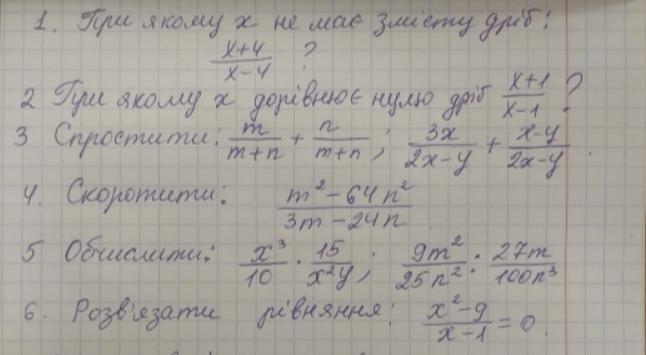 1. При якому x не має змісту дріб:
(x+4)/(x-4) ?
2 При якому x дорівнює нулю дріб (x+1)/(x-1) ?
3 Спростити: m/(m+n) + n/(m+n); 3x/(2x-y) + (x-y)/(2x-y).
4. Скоротити: (m²-64n²)/(3m-24n)
5 Обчислити: x³/10 · 15/(x²y); 9m²/(25n²) : 27m/(100n³)
6. Розв'язати рівняння: (x²-9)/(x-1) = 0.